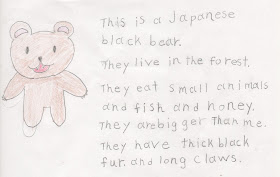 This is a Japanese
black bear.
They live in the forest.
They eat small animals
and fish and honey.
They are bigger Than me.
They have thick black
fur. and long claws.